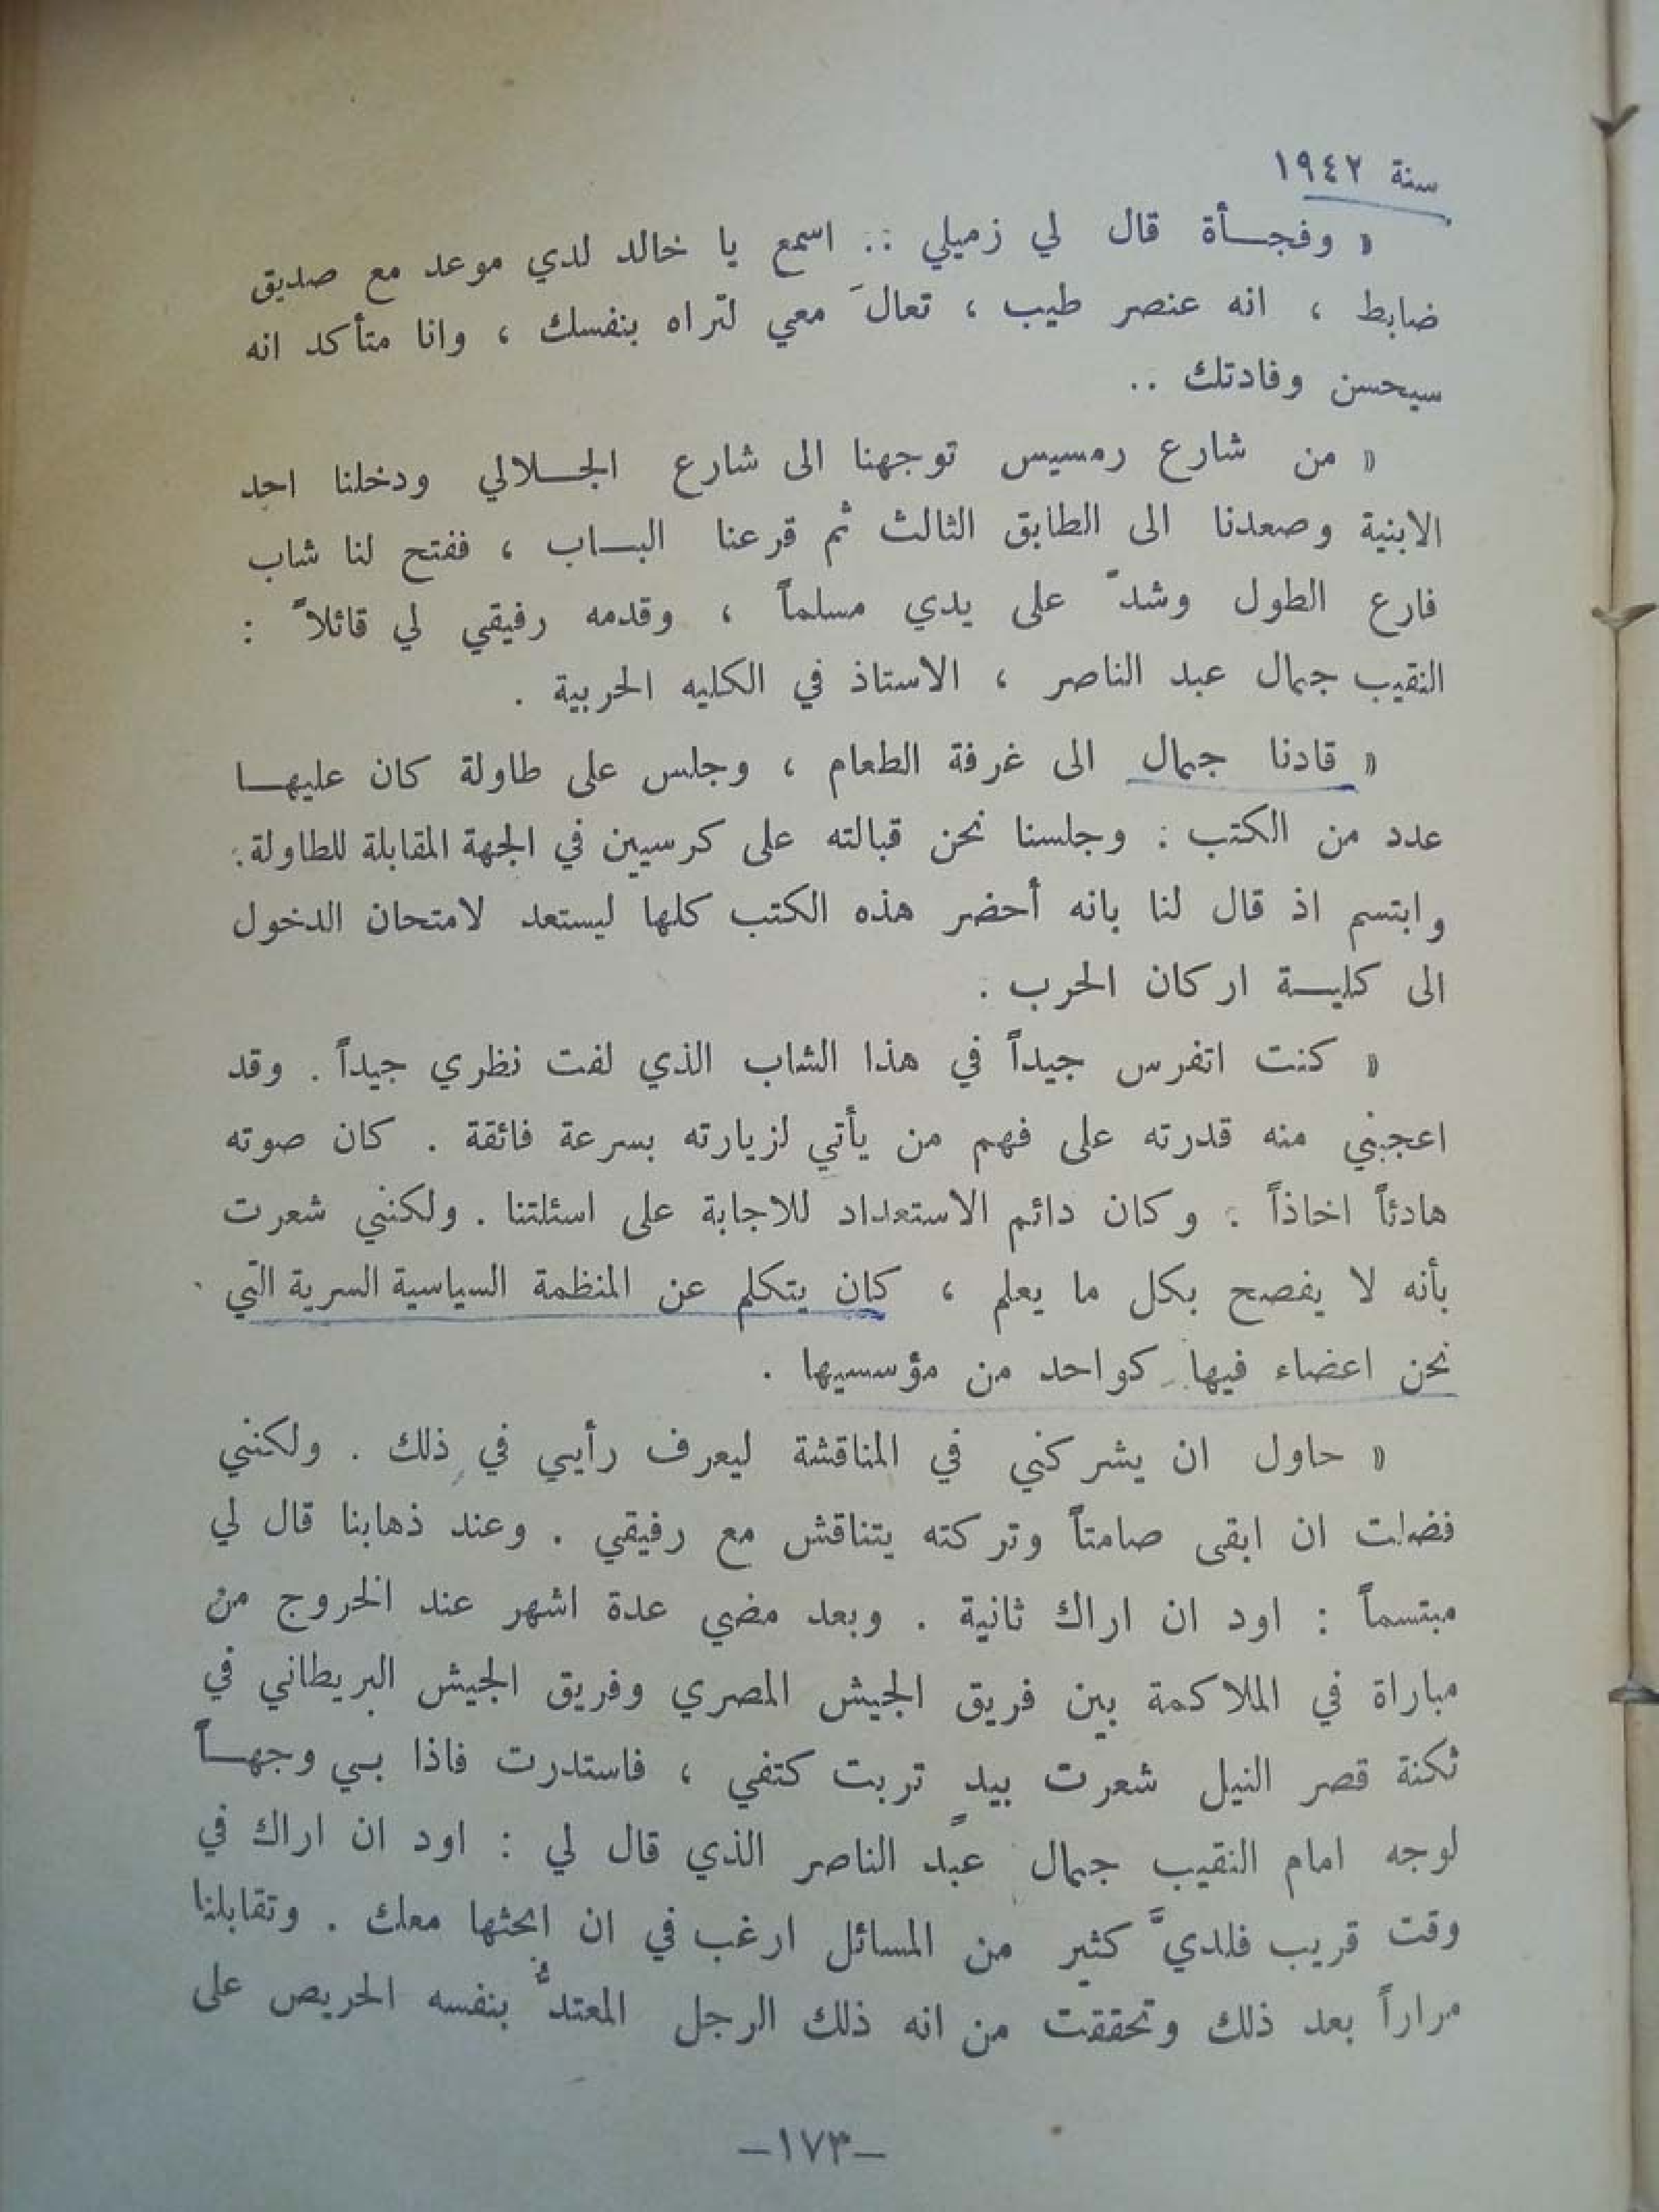 سنة ١٩٤٢
« وفجـــأة قال لي زميلي .. اسمع يا خالد لدي موعد مع صديق
ضابط ، انه عنصر طيب ، تعالَ معي لتراه بنفسك ، وانا متأكد انه
سيحسن وفادتك ..
« من شارع رمسيس توجهنا الى شارع الجـــلالي ودخلنا احد
الابنية وصعدنا الى الطابق الثالث ثم قرعنا البـــاب ، ففتح لنا شاب
فارع الطول وشدّ على يدي مسلماً ، وقدمه رفيقي لي قائلاً :
النقيب جمال عبد الناصر ، الاستاذ في الكليه الحربية .
« قادنا جمال الى غرفة الطعام ، وجلس على طاولة كان عليهـــا
عدد من الكتب . وجلسنا نحن قبالته على كرسيين في الجهة المقابلة للطاولة.
وابتسم اذ قال لنا بانه أحضر هذه الكتب كلها ليستعد لامتحان الدخول
الى كليـــة اركان الحرب .
« كنت اتفرس جيداً في هذا الشاب الذي لفت نظري جيداً . وقد
اعجبني منه قدرته على فهم من يأتي لزيارته بسرعة فائقة . كان صوته
هادئاً اخاذاً . وكان دائم الاستعداد للاجابة على اسئلتنا . ولكنني شعرت
بأنه لا يفصح بكل ما يعلم ، كان يتكلم عن المنظمة السياسية السرية التي
نحن اعضاء فيها كواحد من مؤسسيها .
« حاول ان يشركني في المناقشة ليعرف رأيي في ذلك . ولكنني
فضلت ان ابقى صامتاً وتركته يتناقش مع رفيقي . وعند ذهابنا قال لي
مبتسماً : اود ان اراك ثانية . وبعد مضي عدة اشهر عند الخروج من
مباراة في الملاكمة بين فريق الجيش المصري وفريق الجيش البريطاني في
ثكنة قصر النيل شعرت بيدٍ تربت كتفي ، فاستدرت فاذا بـي وجهـــاً
لوجه امام النقيب جمال عبد الناصر الذي قال لي : اود ان اراك في
وقت قريب فلديَّ كثير من المسائل ارغب في ان ابحثها معك . وتقابلنا
مراراً بعد ذلك وتحققت من انه ذلك الرجل المعتدُّ بنفسه الحريص على
—١٧٣—